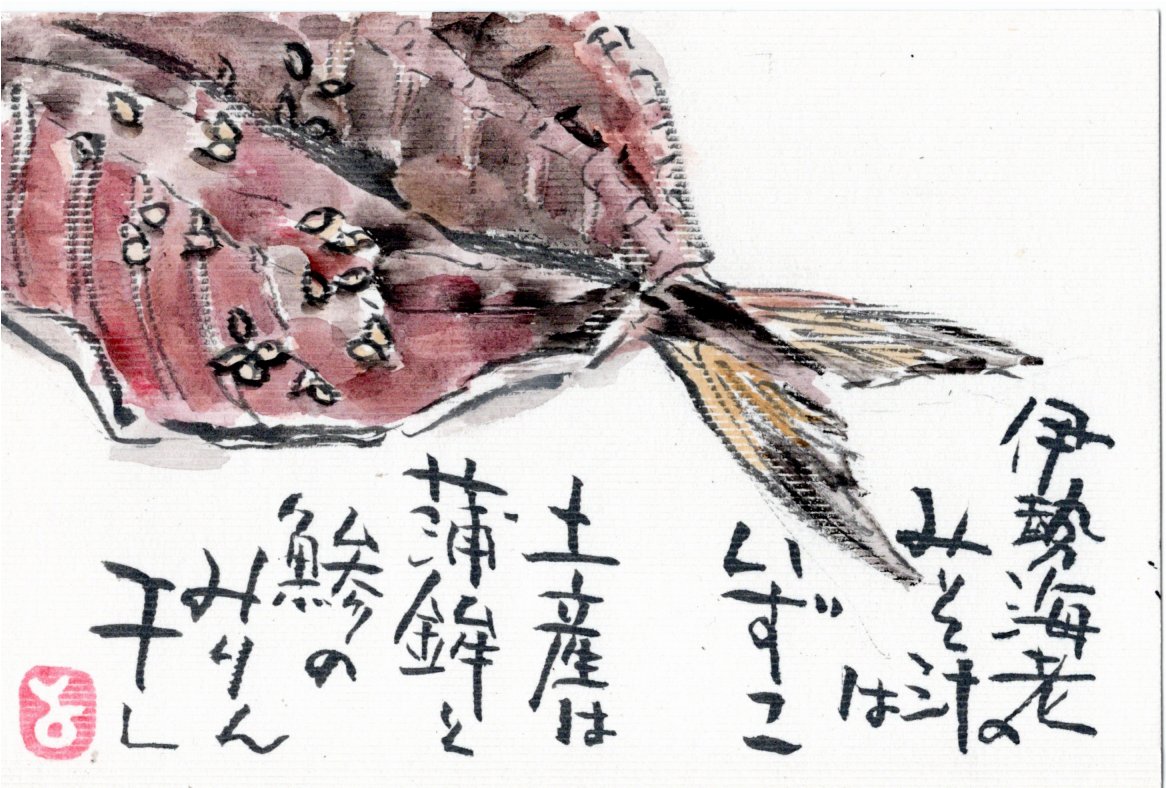 伊勢海老の
みそ汁は
いずこ
土産は
蒲鉾と
鯵の
みりん
干し
よ